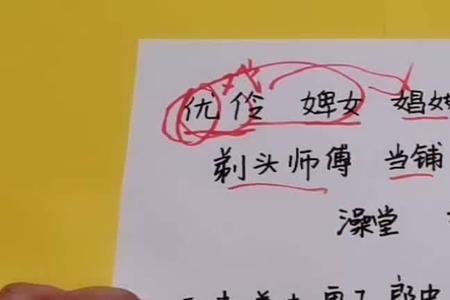 优伶 婢女 娼
剃头师傅 当铺
澡堂